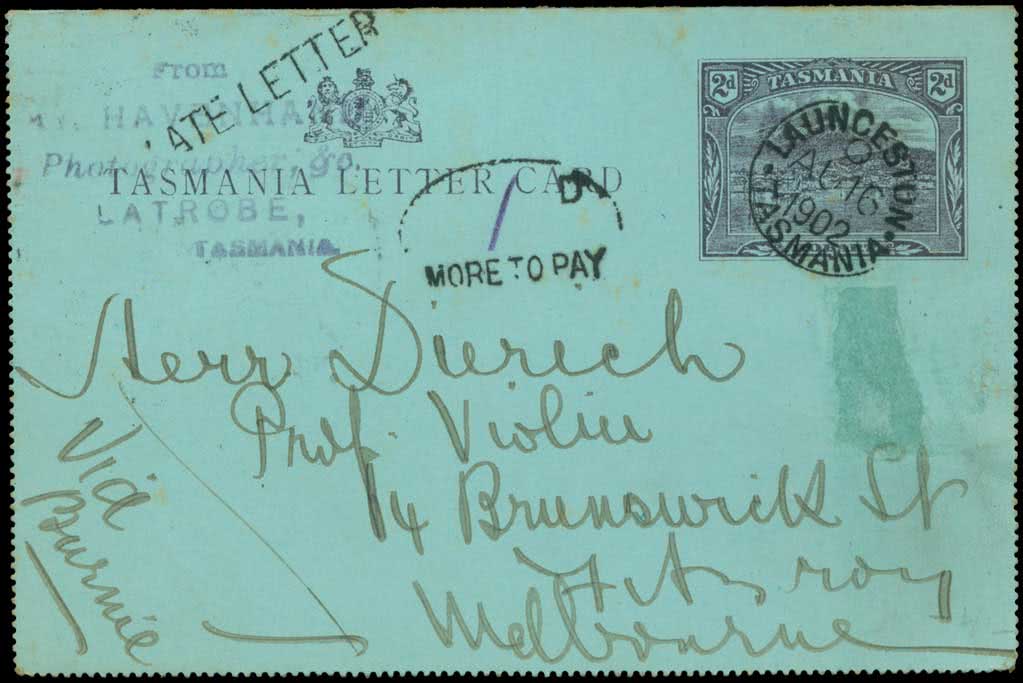 From
HAVENHAND
Photographer, &c.
LATROBE,
TASMANIA.
LATE LETTER
TASMANIA LETTER CARD
2d TASMANIA 2d
LAUNCESTON
AU 16
1902
TASMANIA
1 D
MORE TO PAY
Herr Dierich
Prof. Violin
14 Brunswick St
Fitzroy
Melbourne
Via
Burnie